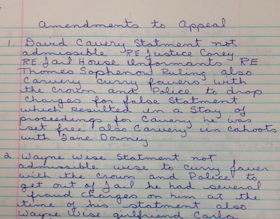 Amendments to Appeal
1. David Cauery Statment not
admissible "RE Justice Corey
RE Jail House Unformants" RE
Thomas Sophonon Ruling also
Cauery curry favers with
the Crown and Police to drop
Charges for false Statment
which resulted in a Stay of
proceedings for Cauery he was
set free also Cauery in cahoots
with Jane Downey
2. Wayne Wise Statment not
admissible wise to curry faver
with the Crown and Police to
get out of Jail he had several
fraud charges on him at the
time of his statement also
Wayne Wise girlfriend Carla